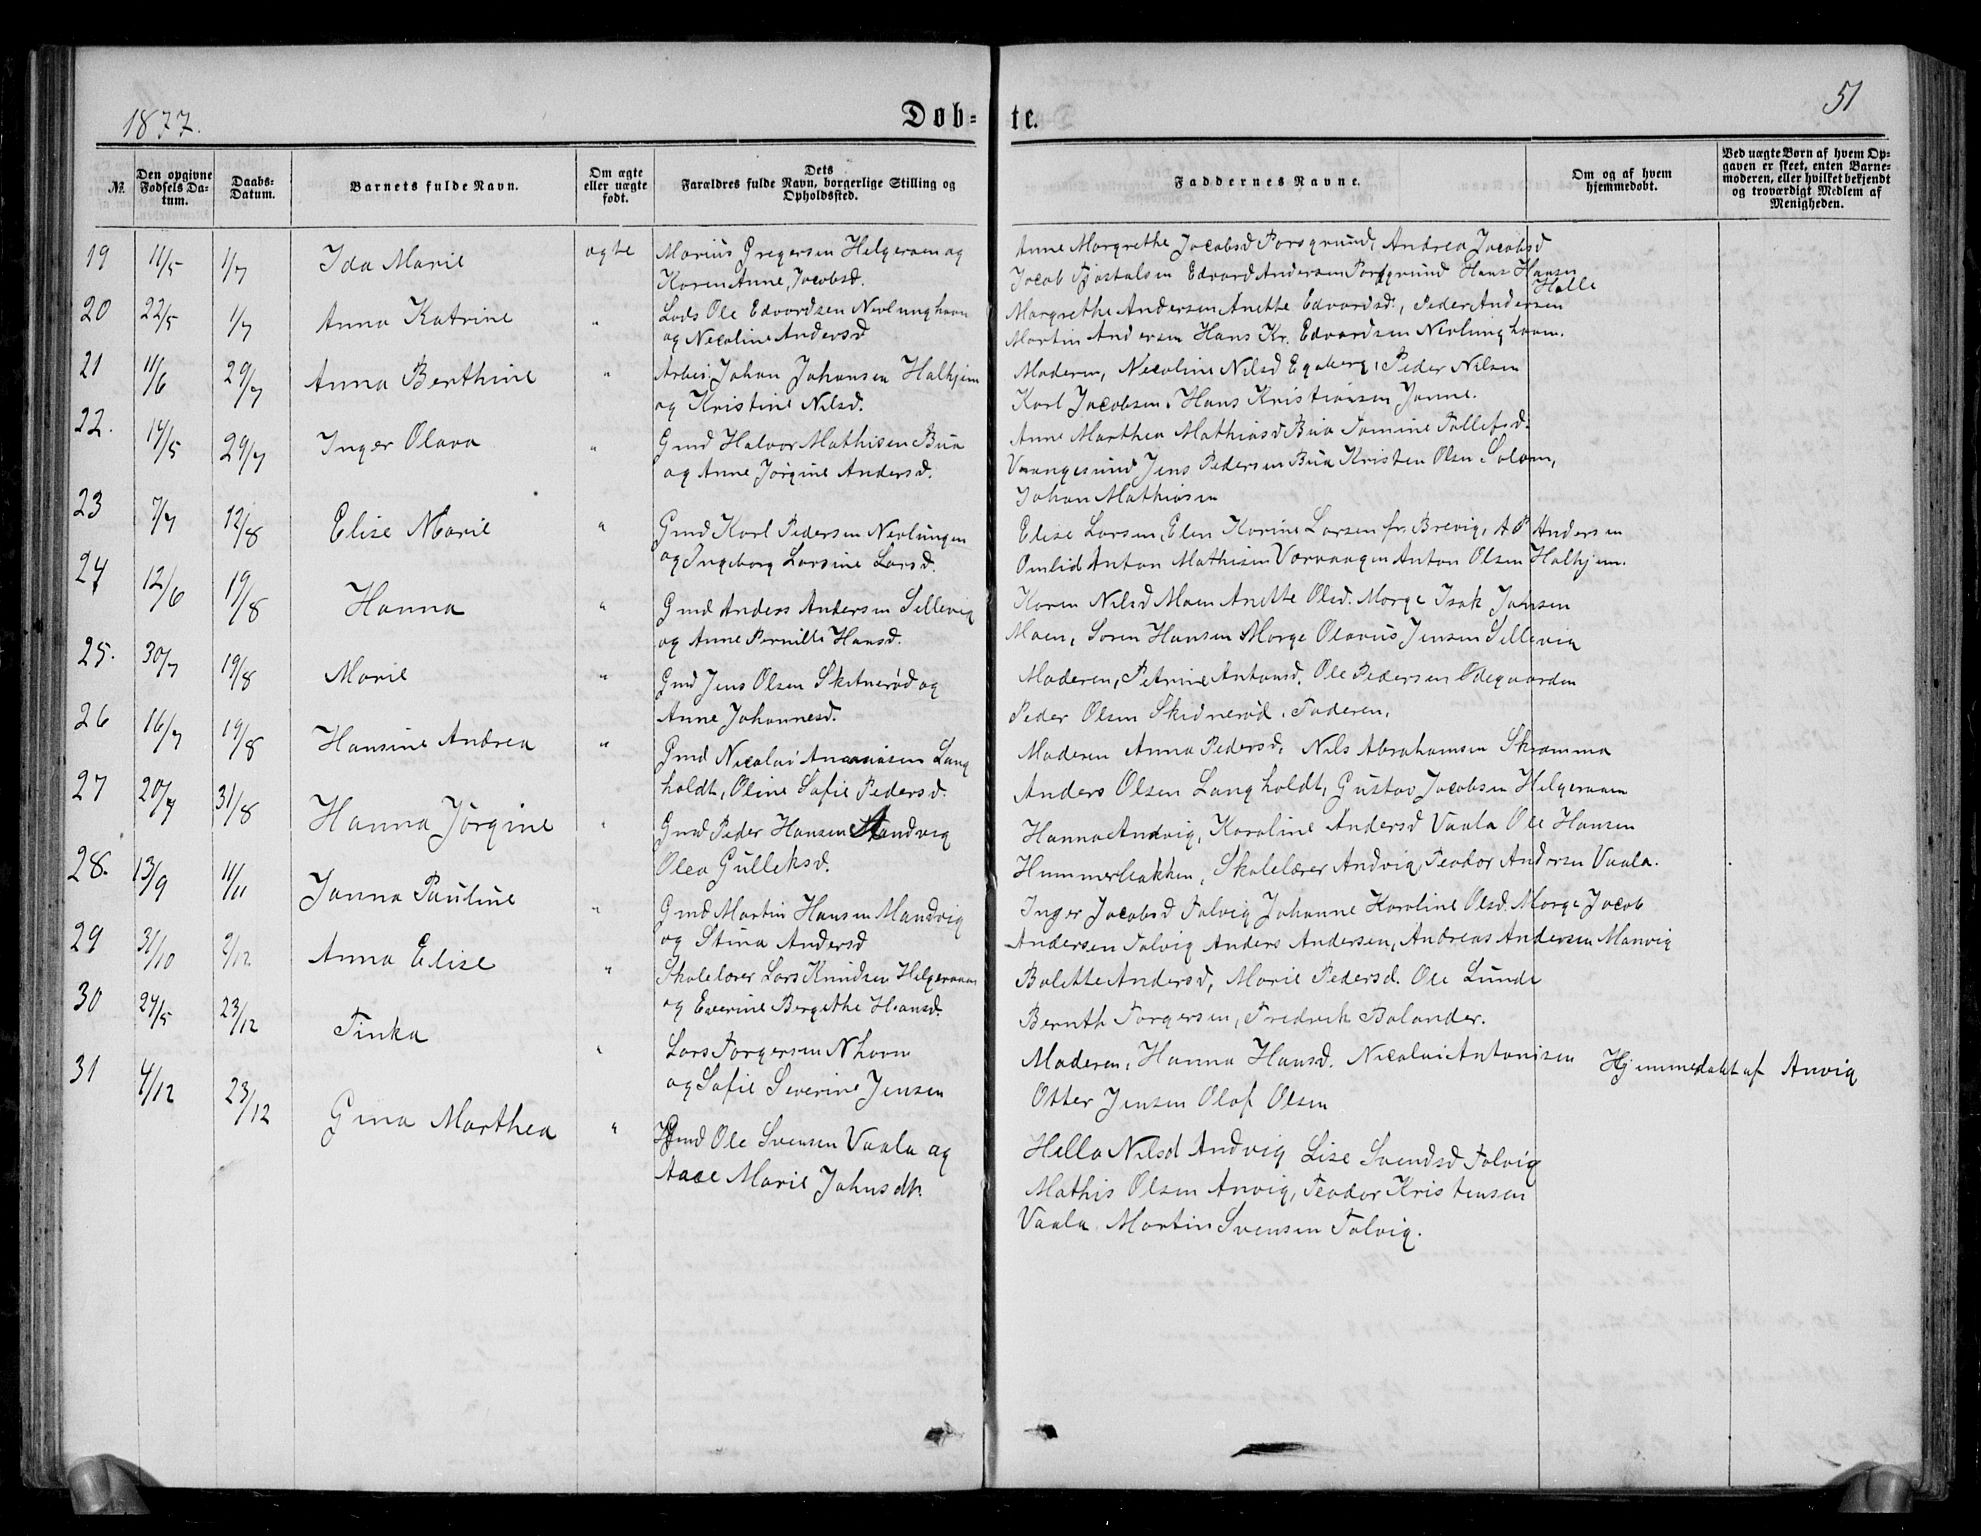 1877.
Døb-
te.
51
№.
Den opgivne Fødsels Datum.
Daabs-Datum.
Barnets fulde Navn.
Om ægte eller uægte født.
Dets Forældres fulde Navn, borgerlige Stilling og Opholdssted.
Faddernes Navne.
Om og af hvem hjemmedøbt.
Ved uægte Børn af hvem Opgaven er skeet, enten Barnemoderen, eller hvilket bekjendt og troværdigt Medlem af Menigheden.
19 11/5 1/7 Ida Marie ægte Marius Gregersen Helgeroen og
Karen Anne Jacobsd.
Anne Margrethe Jacobsd Porsgrund, Andrea Jacobsd
Jacob Tjostalsen Edvard Andersen Porsgrund Hans Hansen
Halle
20 22/5 1/7 Anna Katrine " Lods Ole Edvardsen Nevlunghavn
og Nicoline Andersd
Margrethe Andersen Anette Edvardsd., Peder Andersen
Martin Andersen Hans Kr. Edvardsen Nevlunghavn.
21 11/6 29/7 Anna Berthine " Arbei. Johan Johansen Halhjem
og Kristine Nilsd.
Moderen, Nicoline Nilsd Egeberg, Peder Nilsen
Karl Jacobsen. Hans Kristiansen Janne.
22. 14/5 29/7 Inger Olava " Gmd Halvor Mathisen Bua
og Anne Jørgine Andersd.
Anne Marthea Mathiasd Bua Tomine Tollefsd.
Vrangesund Jens Pedersen Bua Kristen Olsen Solom,
Johan Mathiasen
23 7/7 12/8 Elise Marie " Gmd Karl Pedersen Nevlungen
og Ingeborg Larsine Larsd.
Elise Larsen, Elen Karine Larsen fr. Brevig, A P Andersen
Omlid Anton Mathisen Varvaagen Anton Olsen Halhjem.
24 12/6 19/8 Hanna " Gmd Anders Andersen Sillevig
og Anne Pernille Hansd.
Karen Nilsd Moen Anette Olsd. Morge Isak Johsen
Moen, Søren Hansen Morge Olavus Jensen Sillevig
25. 30/7 19/8 Marie " Gmd Jens Olsen Skitnerød og
Anne Johannesd.
Moderen, Petrine Antonsd. Ole Pedersen Ødegaarden
Peder Olsen Skidnerød. Faderen.
26 16/7 19/8 Hansine Andrea " Gmd Nicolai Ananiasen Lang
holdt, Oline Sofie Pedersd.
Moderen Anna Pedersd, Nils Abrahamsen Skramma
Anders Olsen Langholdt, Gustav Jacobsen Helgeroen
27 20/7 31/8 Hanna Jørgine " Gmd Peder Hansen Andvig
Olea Gulleksd.
Hanna Andvig, Karoline Andersd Vaala Ole Hansen
Hummerbakken, Skolelærer Andvig Teodor Andersen Vaala.
28. 13/9 11/11 Janna Pauline " Gmd Martin Hansen Mandvig
og Stina Andersd
Inger Jacobsd Tolvig Johanne Karoline Olsd. Morge Jacob
Andersen Tolvig Anders Andersen, Andreas Andersen Manvig
29 31/10 2/12 Anna Elise " Skolelærer Lars Knudsen Helgeroen
og Everine Bergethe Hansd.
Bolette Andersd, Marie Pedersd. Ole Lunde
Bernth Torgersen, Fredrik Bolander.
30 24/5 23/12 Tinka " Lars Torgersen Nhavn
og Sofie Severine Jensen
Moderen, Hanna Hansd. Nicolai Antonisen
Otter Jensen Olaf Olsen
Hjemmedøbt af Anvig
31 4/12 23/12 Gina Marthea " Gmd Ole Svensen Vaala og
Aase Marie Johnsdtr.
Hella Nilsd Andvig Lise Svendsd Tolvig
Mathis Olsen Anvig, Teodor Kristensen
Vaala. Martin Svensen Tolvig.